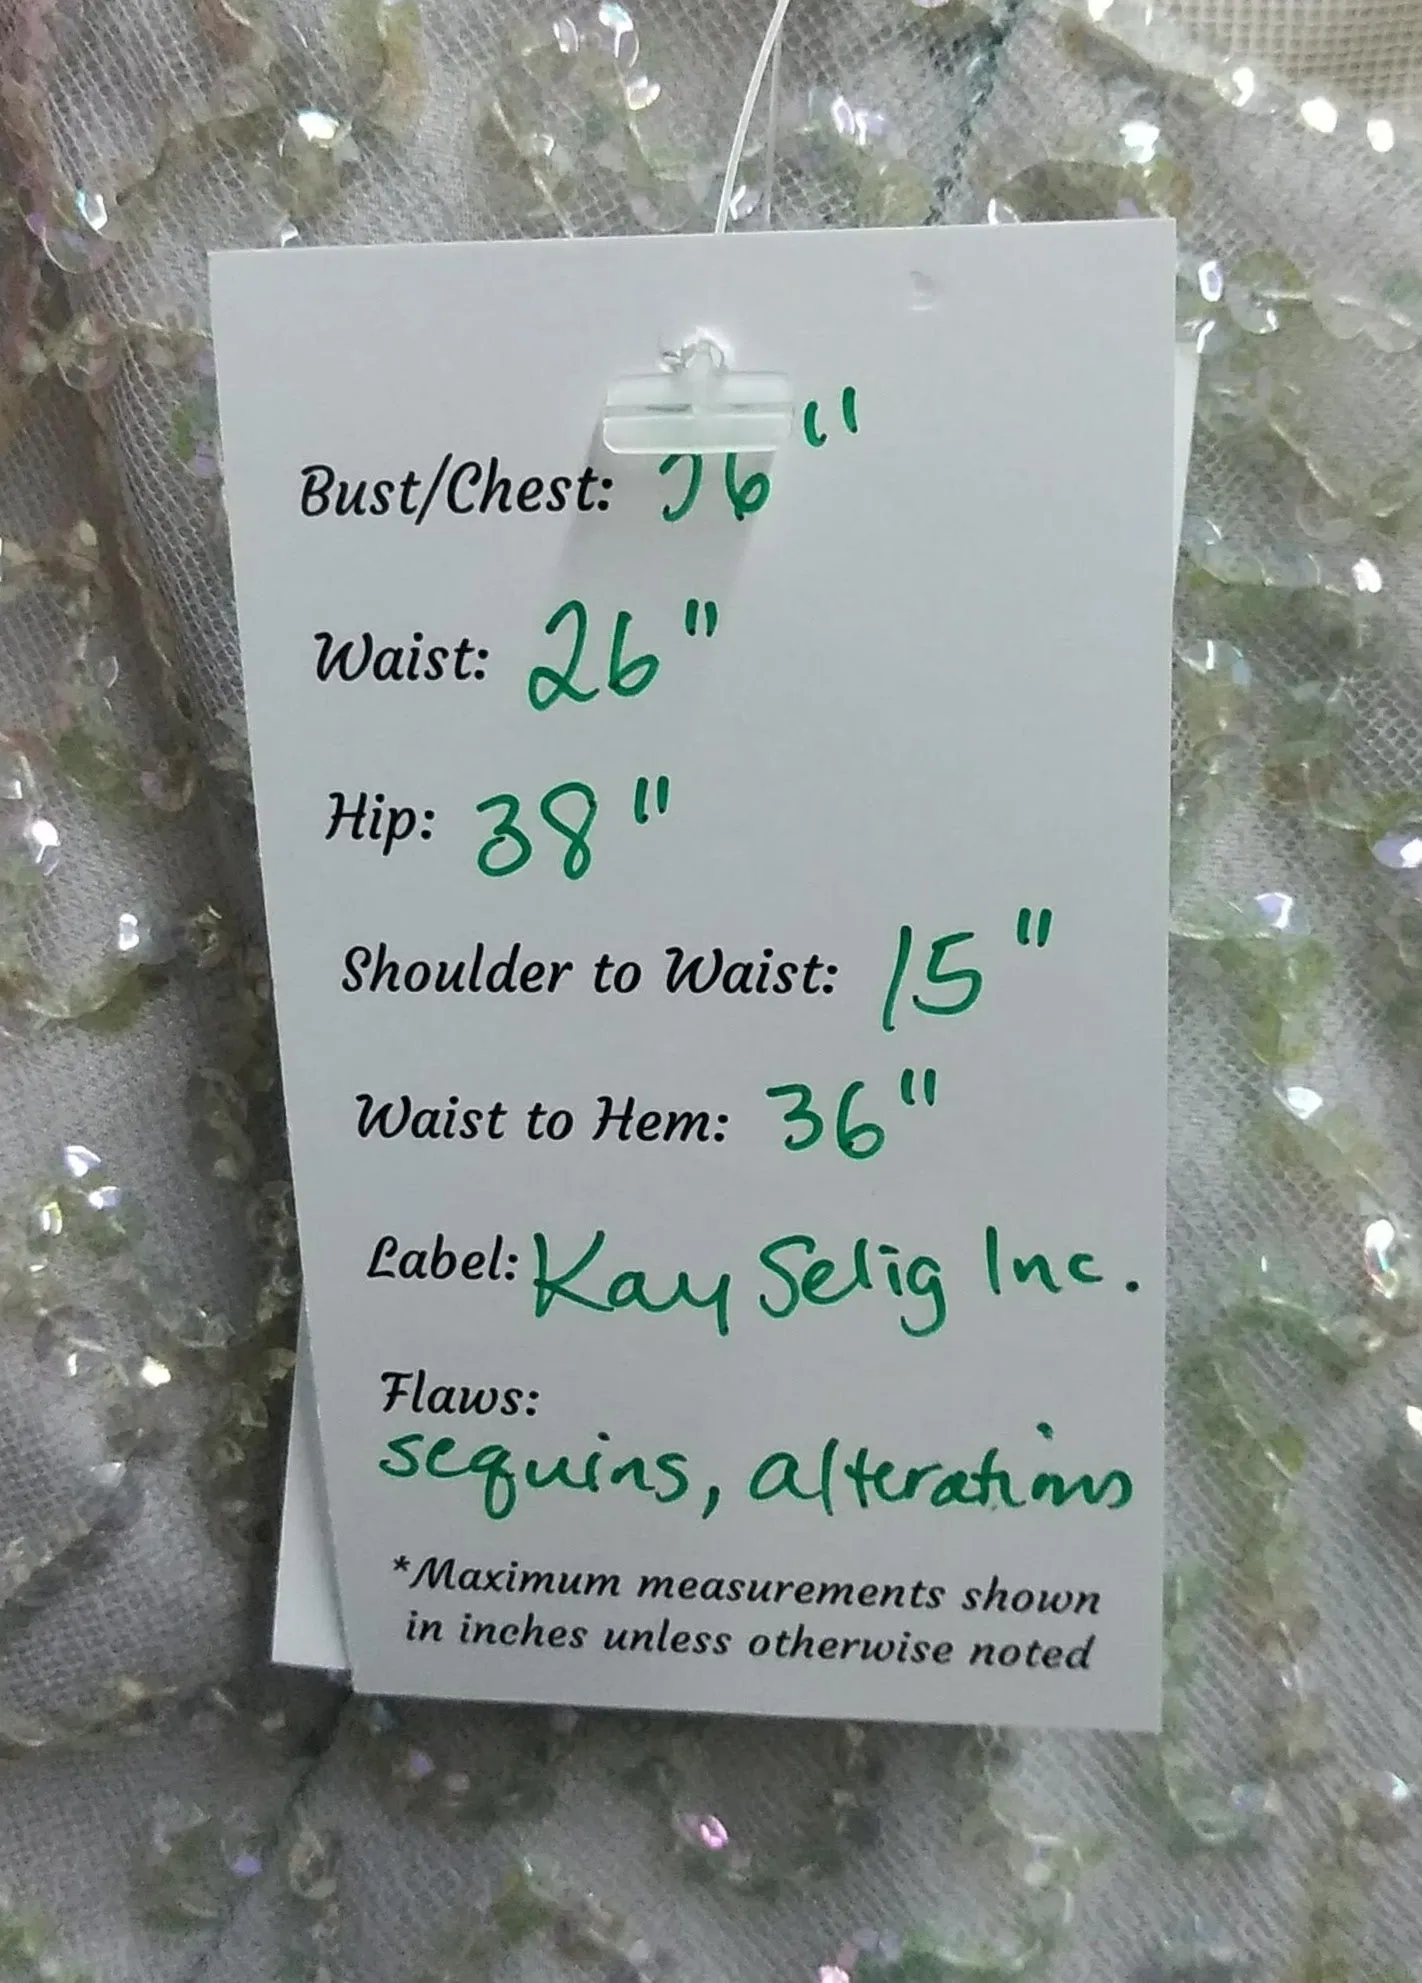 Bust/Chest: 36"
Waist: 26"
Hip: 38"
Shoulder to Waist: 15"
Waist to Hem: 36"
Label: Kay Selig Inc.
Flaws:
sequins, alterations
*Maximum measurements shown
in inches unless otherwise noted